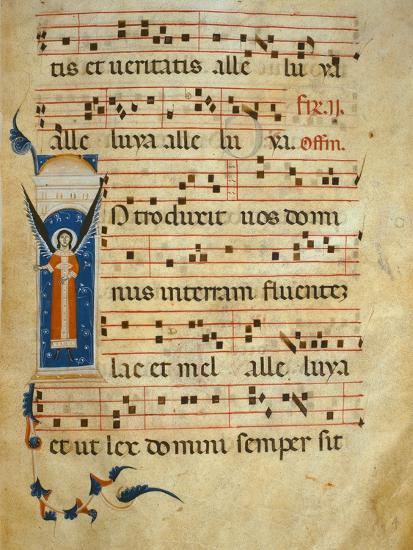 tis et ueritatis alle lu ya
fir. II.
alle luya alle lu ya. Offin.
Introduxit uos domi
nus in terram fluentez
lac et mel alle luya
et ut lex domini semper sit